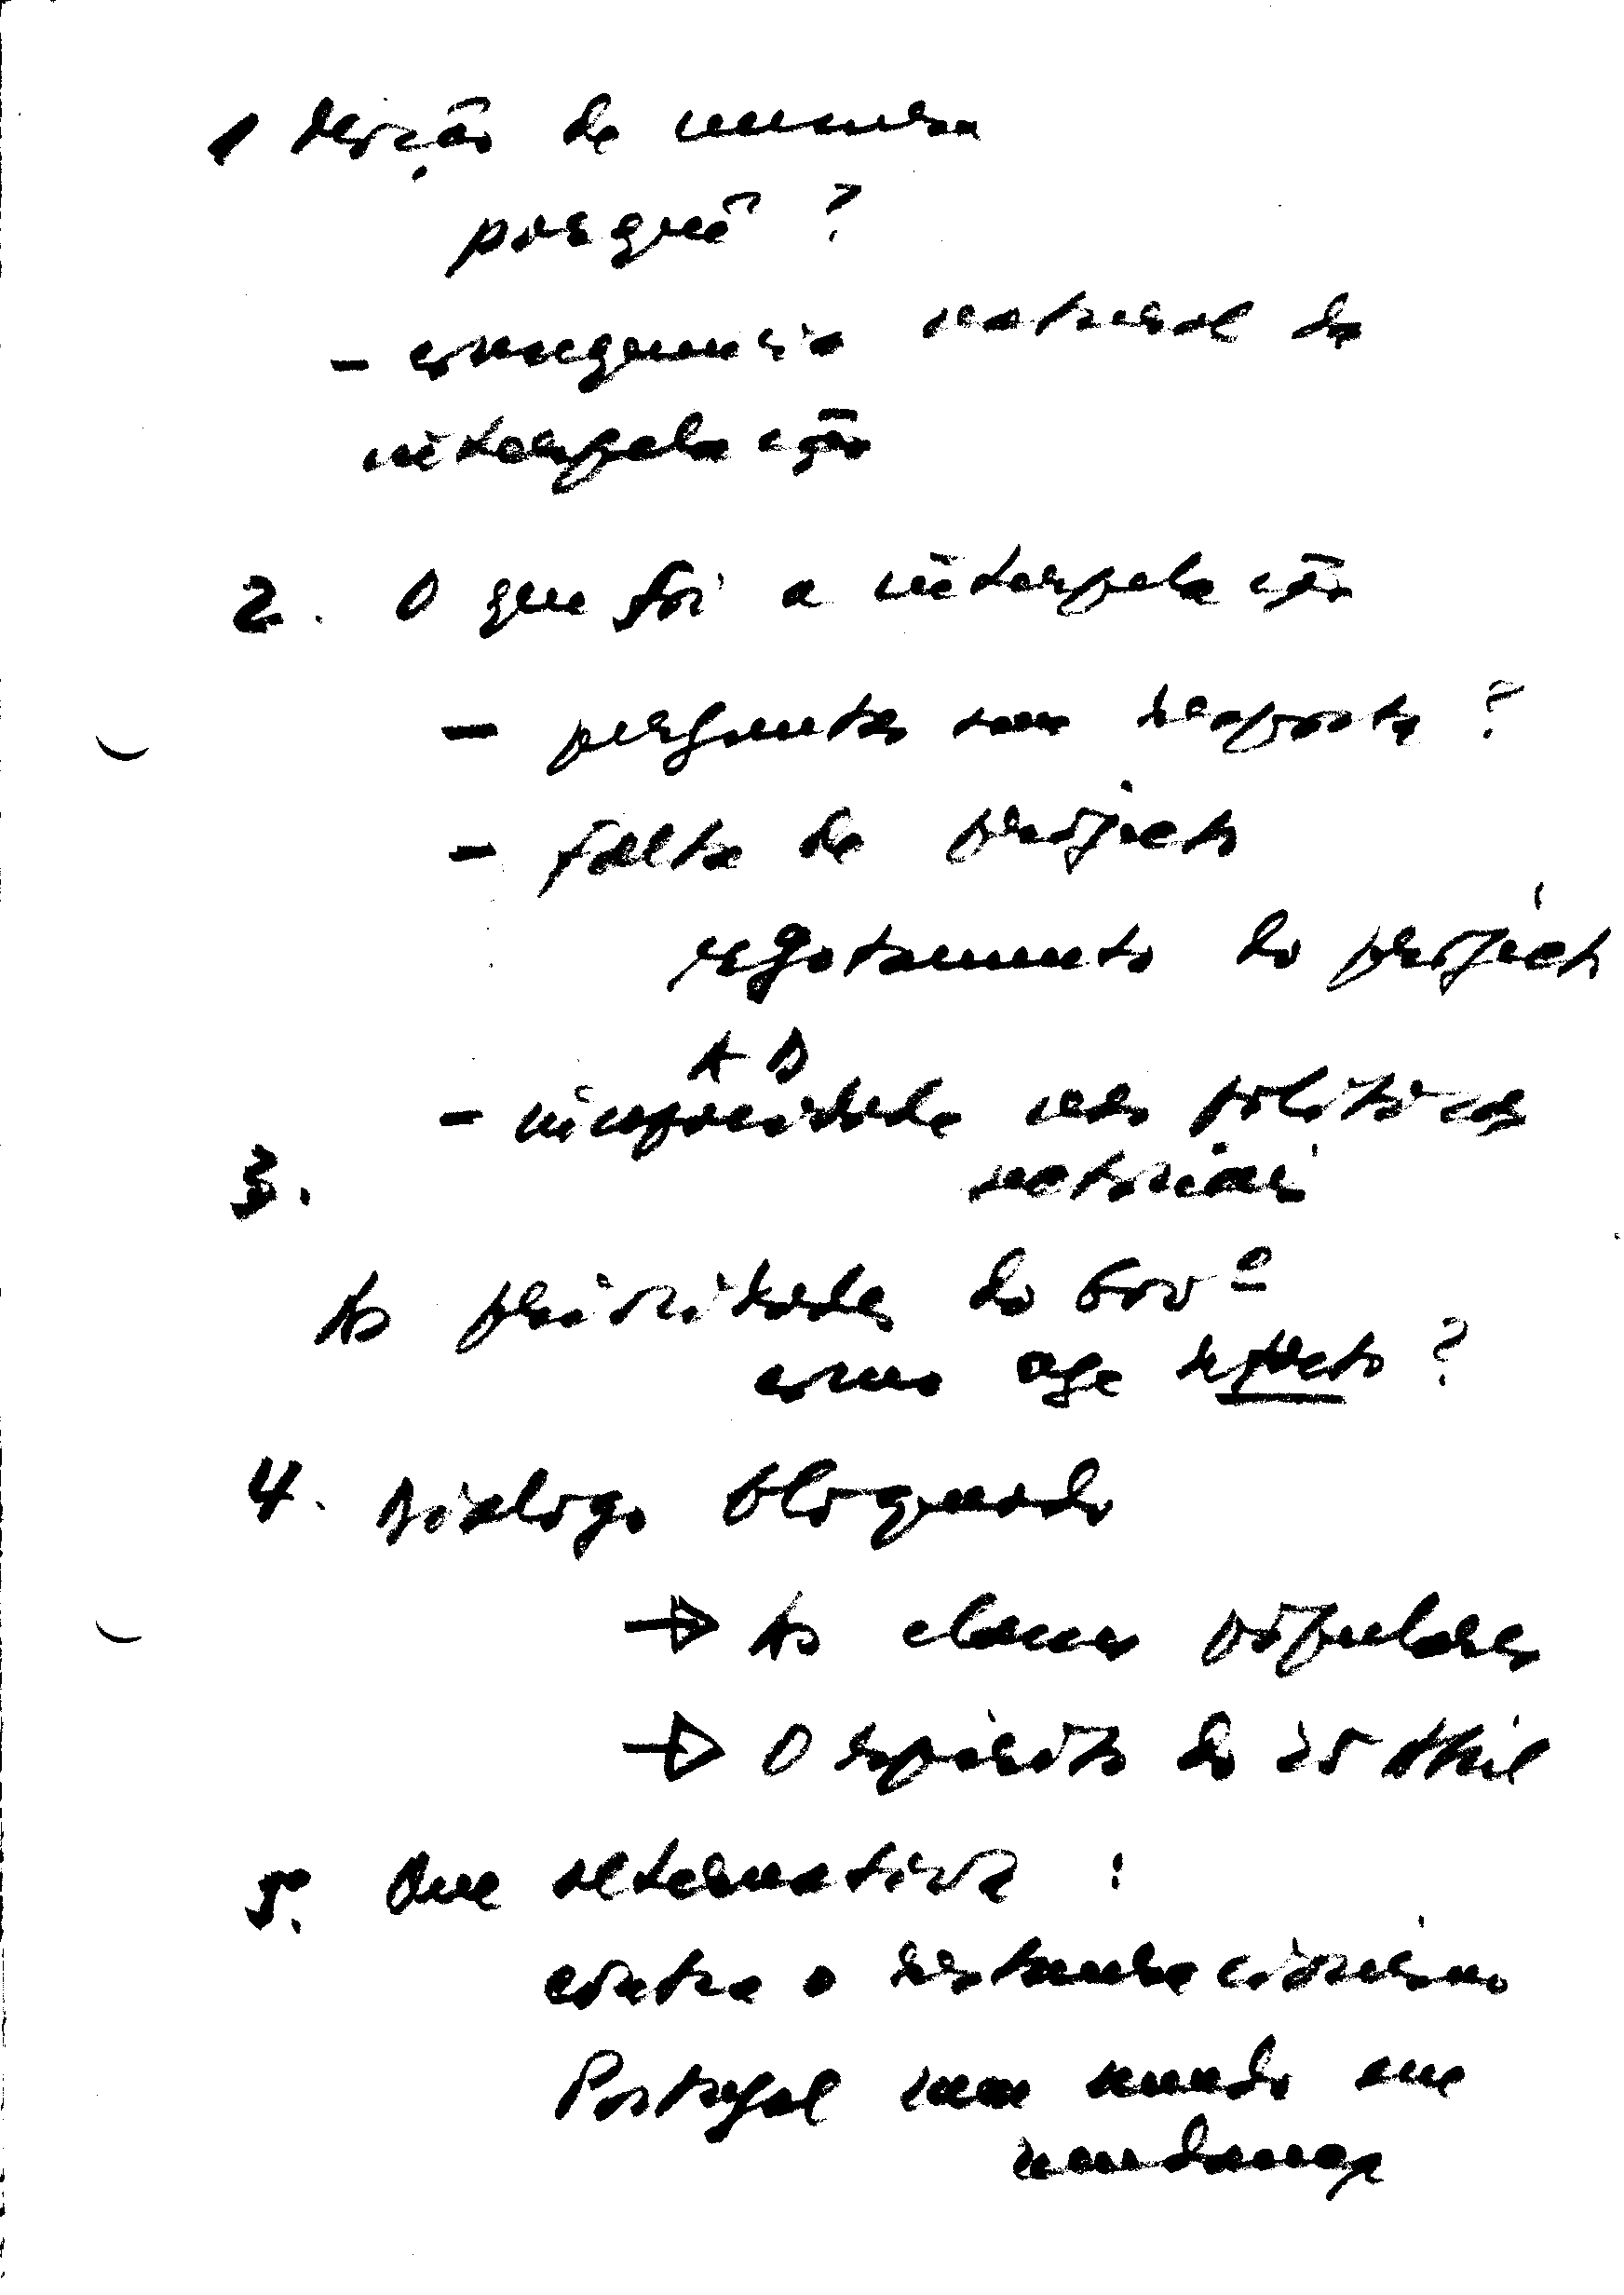 1 Moção de censura
porquê ?
- consequencia natural da
interpelação
2. O que foi a interpelação
- perguntas sem resposta ?
- falta de projecto
esgotamento do projecto
AD
- incapacidade nas políticas
sectoriais
3.
As prioridades do Govº
como age ?
4. Dialogo bloqueado
→ As classes populares
→ O espirito do 25 Abril
5. Que alternativa :
contra o
Portugal num mundo em
mudança